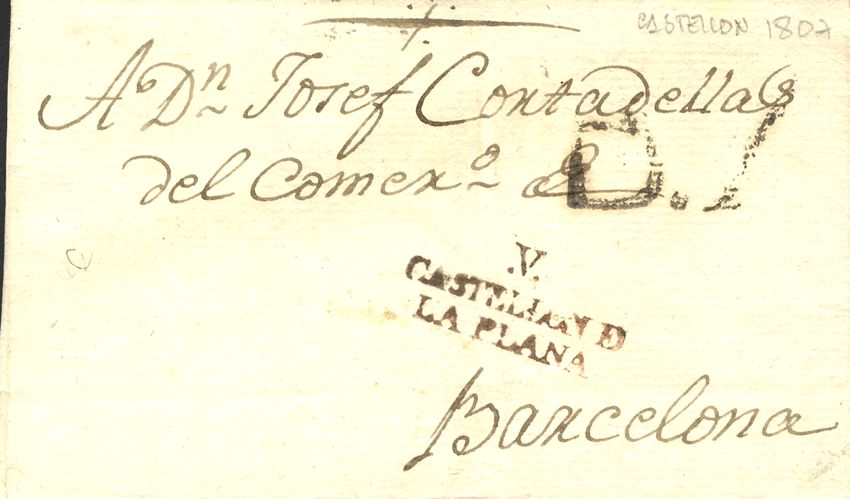 CASTELLON 1807
A Dn Josef Contadellas
del Comerº &
D.7
.V.
CASTELLAN D
LA PLANA
Barcelona